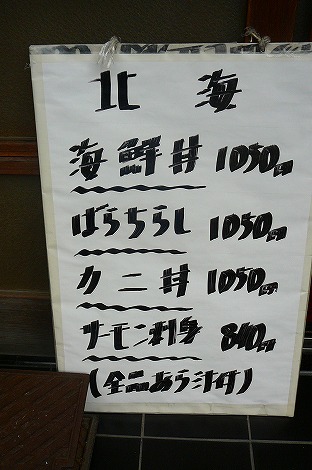 北海
海鮮丼 1050円
ばらちらし 1050円
カニ丼 1050円
サーモン刺身 840円
(全品あら汁付)